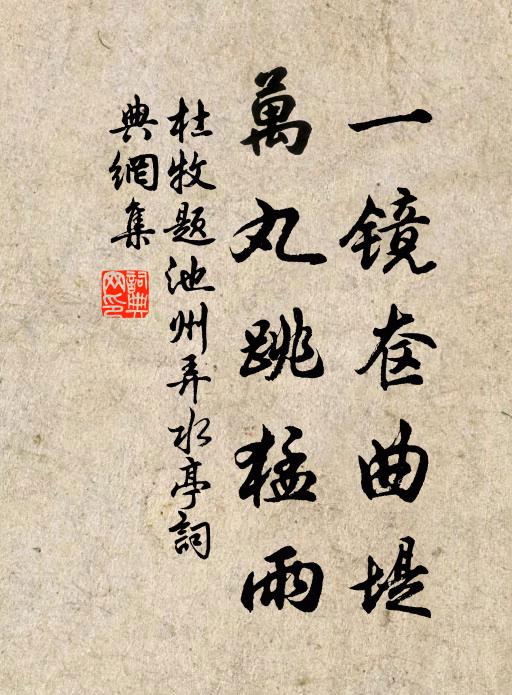 一镜奁曲堤
萬丸跳猛雨
杜牧题池州弄水亭詞
典網集
詞典
网印